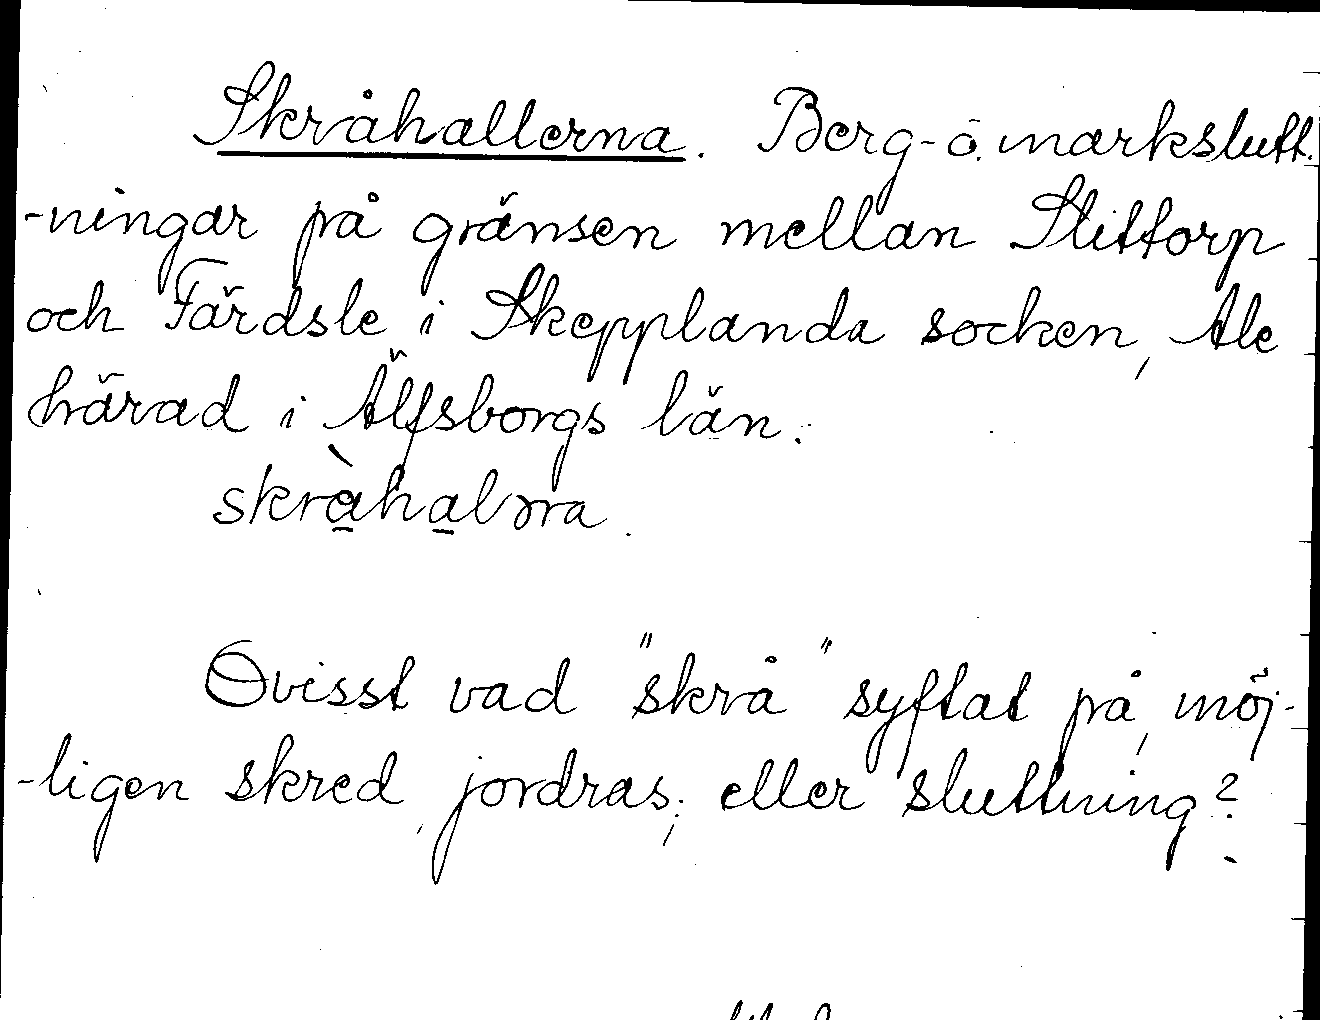 Skråhallerna. Berg- o. markslutt.
-ningar på gränsen mellan Slittorp
och Färdsle i Skepplanda socken, Ale
härad i Älfsborgs län.
skràhalɔrna.
Ovisst vad "skrå" syftat på, möj-
-ligen skred, jordras; eller sluttning?